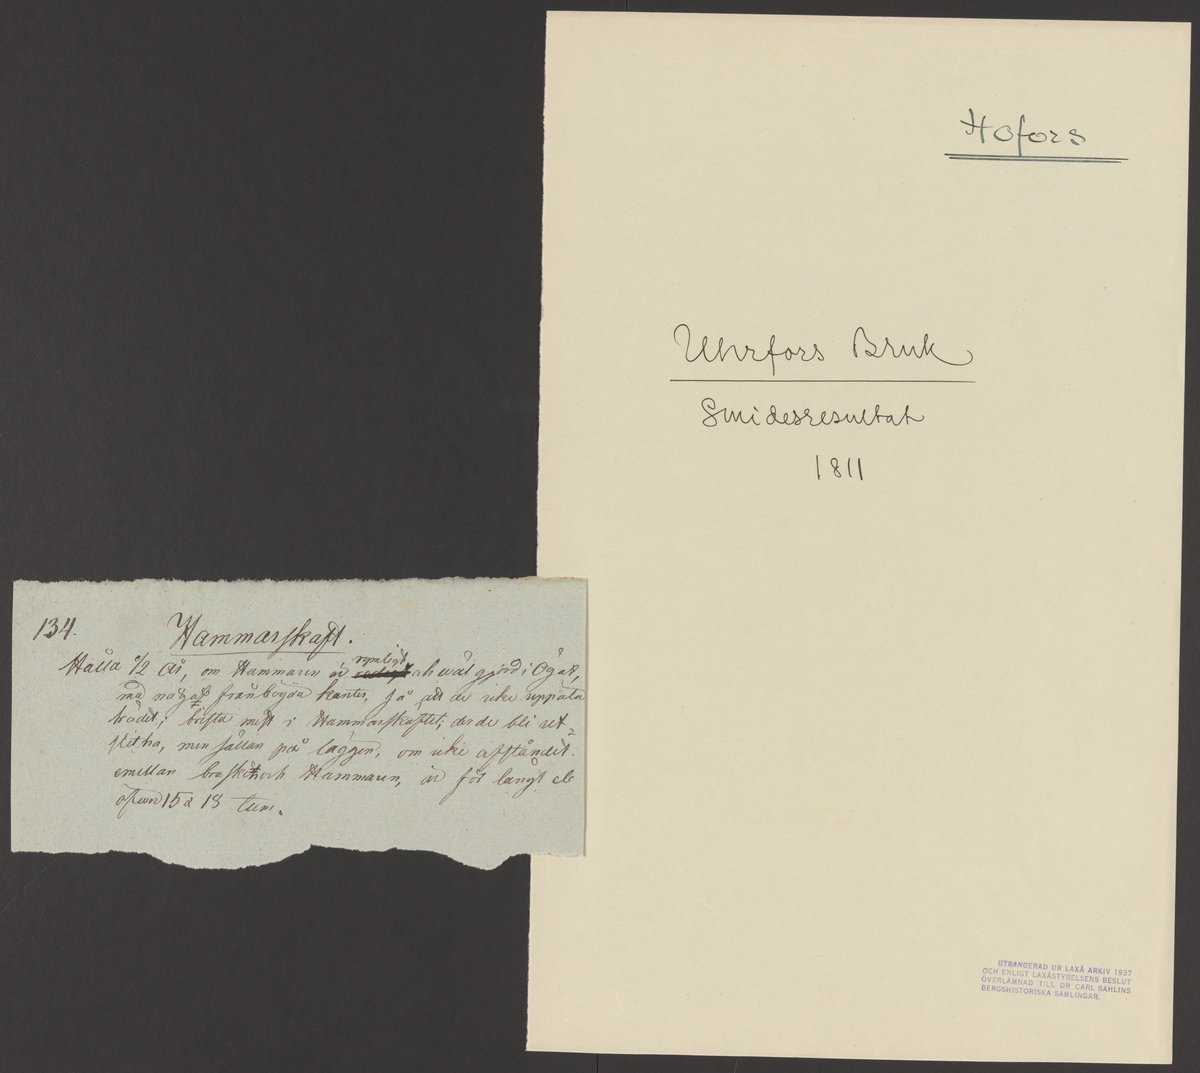 Hofors
Uhrfors Bruk
Smidesresultat
1811
134.
Hammarskaft.
Hålla 1/2 år, om Hammaren är rymligt och wäl gjord i Ögat,
med något från böjda kanter, så att de icke uppäta
trädet; brista mäst i Hammarskaftet; der de bli ut=
slitna, men sällan på laggen, om icke afståndet
emellan braskan och Hammaren, är för långt el:
öfwer 15 a 18 tum.
UTRANGERAD UR LAXÅ ARKIV 1937
OCH ENLIGT LAXÅSTYRELSENS BESLUT
ÖVERLÄMNAD TILL DR CARL SAHLINS
BERGSHISTORISKA SAMLINGAR.